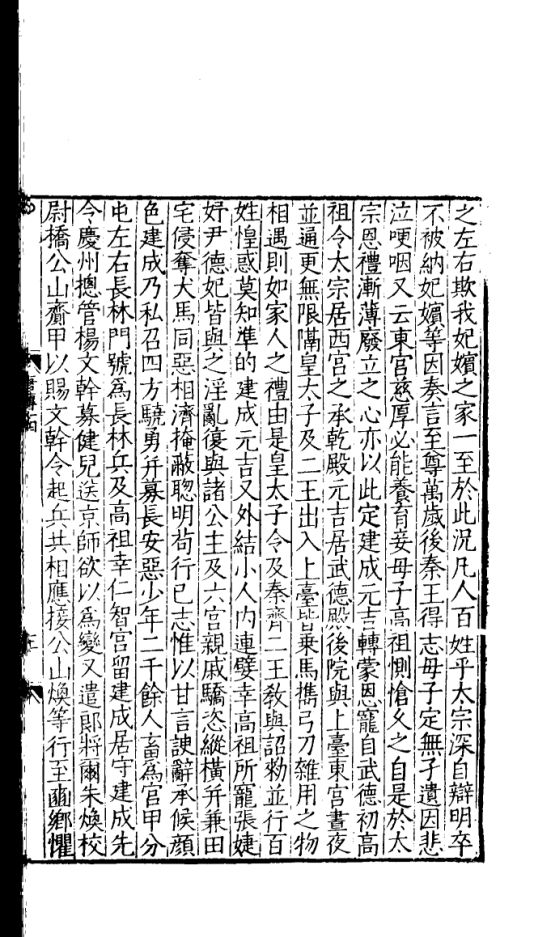 之左右欺我妃嬪之家一至於此況凡人百姓乎太宗深自辯明卒
不被納妃嬪等因奏言至尊萬歲後秦王得志母子定無孑遺因悲
泣哽咽又云東宮慈厚必能養育妾母子高祖惻愴久之自是於太
宗恩禮漸薄廢立之心亦以此定建成元吉轉蒙恩寵自武德初高
祖令太宗居西宮之承乾殿元吉居武德殿後院與上臺東宮晝夜
並通更無限隔皇太子及二王出入上臺皆乘馬攜弓刀雜用之物
相遇則如家人之禮由是皇太子令及秦齊二王教與詔勑並行百
姓惶惑莫知準的建成元吉又外結小人內連嬖幸高祖所寵張婕
妤尹德妃皆與之淫亂復與諸公主及六宮親戚驕恣縱橫并兼田
宅侵奪犬馬同惡相濟掩蔽聰明苟行已志惟以甘言諛辭承候顏
色建成乃私召四方驍勇并募長安惡少年二千餘人畜為宮甲分
屯左右長林門號為長林兵及高祖幸仁智宮留建成居守建成先
令慶州摠管楊文幹募健兒送京師欲以為變又遣郎將爾朱煥校
尉橋公山齎甲以賜文幹令起兵共相應接公山煥等行至豳鄉懼